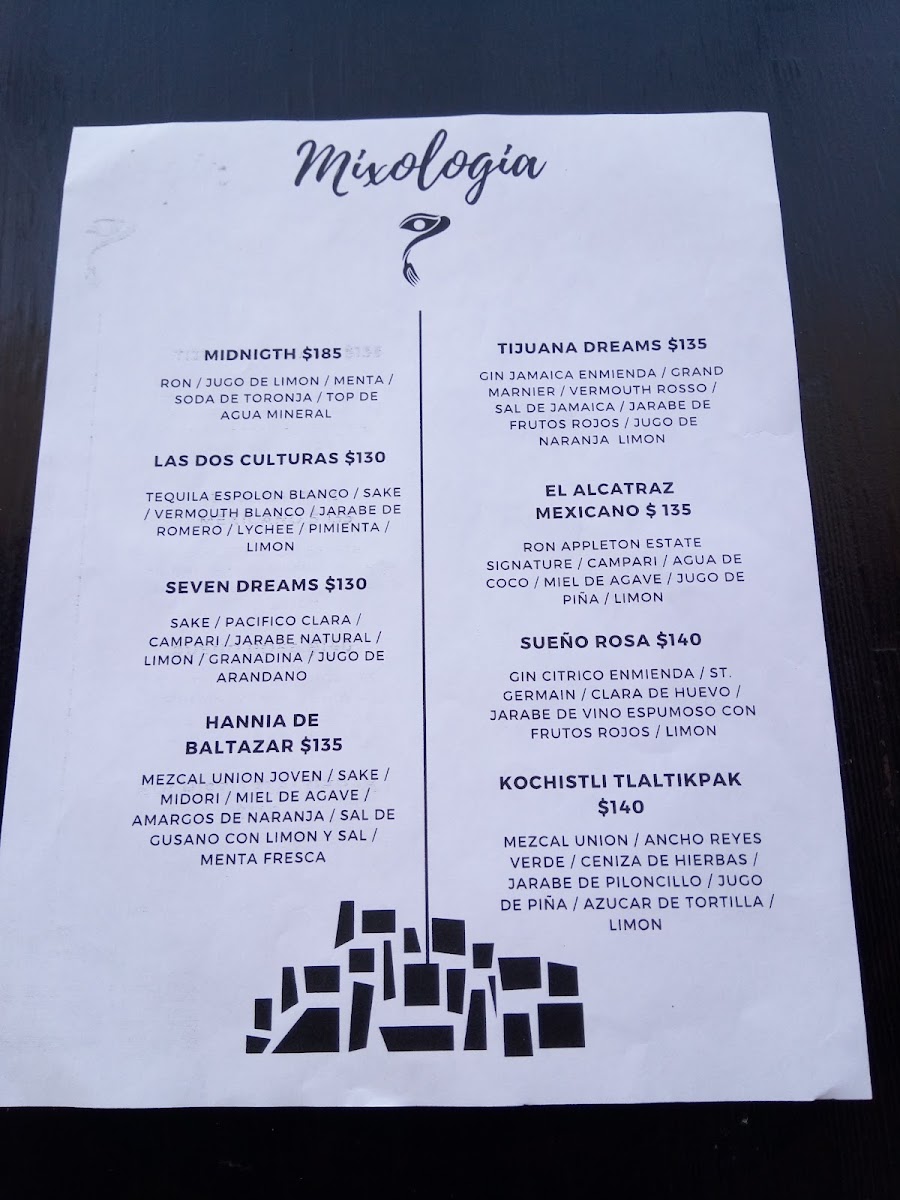 Mixologia
MIDNIGTH $185
RON / JUGO DE LIMON / MENTA /
SODA DE TORONJA / TOP DE
AGUA MINERAL
LAS DOS CULTURAS $130
TEQUILA ESPOLON BLANCO / SAKE
/ VERMOUTH BLANCO / JARABE DE
ROMERO / LYCHEE / PIMIENTA /
LIMON
SEVEN DREAMS $130
SAKE / PACIFICO CLARA /
CAMPARI / JARABE NATURAL /
LIMON / GRANADINA / JUGO DE
ARANDANO
HANNIA DE
BALTAZAR $135
MEZCAL UNION JOVEN / SAKE /
MIDORI / MIEL DE AGAVE /
AMARGOS DE NARANJA / SAL DE
GUSANO CON LIMON Y SAL /
MENTA FRESCA
TIJUANA DREAMS $135
GIN JAMAICA ENMIENDA / GRAND
MARNIER / VERMOUTH ROSSO /
SAL DE JAMAICA / JARABE DE
FRUTOS ROJOS / JUGO DE
NARANJA LIMON
EL ALCATRAZ
MEXICANO $ 135
RON APPLETON ESTATE
SIGNATURE / CAMPARI / AGUA DE
COCO / MIEL DE AGAVE / JUGO DE
PIÑA / LIMON
SUEÑO ROSA $140
GIN CITRICO ENMIENDA / ST.
GERMAIN / CLARA DE HUEVO /
JARABE DE VINO ESPUMOSO CON
FRUTOS ROJOS / LIMON
KOCHISTLI TLALTIKPAK
$140
MEZCAL UNION / ANCHO REYES
VERDE / CENIZA DE HIERBAS /
JARABE DE PILONCILLO / JUGO
DE PIÑA / AZUCAR DE TORTILLA /
LIMON